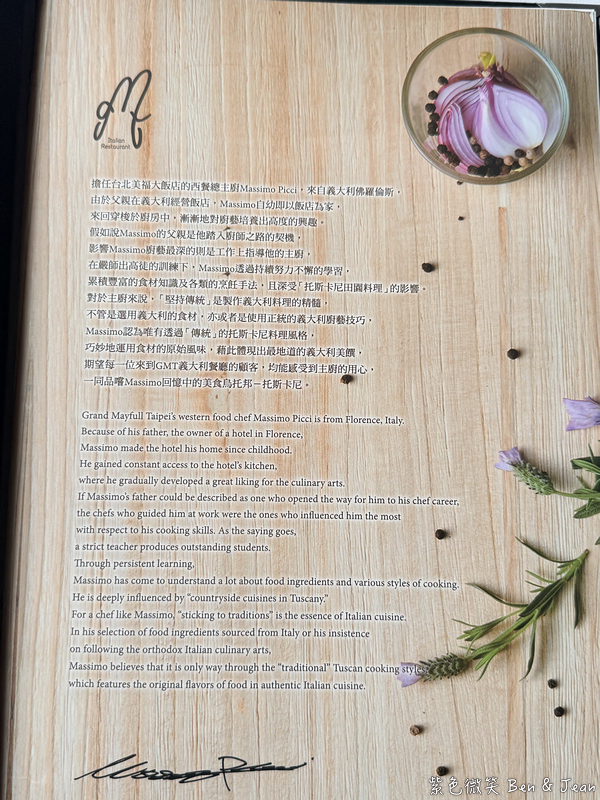 Italian
Restaurant
擔任台北美福大飯店的西餐總主廚Massimo Picci，來自義大利佛羅倫斯，
由於父親在義大利經營飯店，Massimo自幼即以飯店為家，
來回穿梭於廚房中，漸漸地對廚藝培養出高度的興趣。
假如說Massimo的父親是他踏入廚師之路的契機，
影響Massimo廚藝最深的則是工作上指導他的主廚，
在嚴師出高徒的訓練下，Massimo透過持續努力不懈的學習，
累積豐富的食材知識及各類的烹飪手法，且深受「托斯卡尼田園料理」的影響。
對於主廚來說，「堅持傳統」是製作義大利料理的精髓，
不管是選用義大利的食材，亦或者是使用正統的義大利廚藝技巧，
Massimo認為唯有透過「傳統」的托斯卡尼料理風格，
巧妙地運用食材的原始風味，藉此體現出最地道的義大利美饌，
期望每一位來到GMT義大利餐廳的顧客，均能感受到主廚的用心，
一同品嚐Massimo回憶中的美食烏托邦－托斯卡尼。
Grand Mayfull Taipei's western food chef Massimo Picci is from Florence, Italy.
Because of his father, the owner of a hotel in Florence,
Massimo made the hotel his home since childhood.
He gained constant access to the hotel's kitchen,
where he gradually developed a great liking for the culinary arts.
If Massimo's father could be described as one who opened the way for him to his chef career,
the chefs who guided him at work were the ones who influenced him the most
with respect to his cooking skills. As the saying goes,
a strict teacher produces outstanding students.
Through persistent learning,
Massimo has come to understand a lot about food ingredients and various styles of cooking.
He is deeply influenced by "countryside cuisines in Tuscany."
For a chef like Massimo, "sticking to traditions" is the essence of Italian cuisine.
In his selection of food ingredients sourced from Italy or his insistence
on following the orthodox Italian culinary arts,
Massimo believes that it is only way through the "traditional" Tuscan cooking style
which features the original flavors of food in authentic Italian cuisine.
紫色微笑 Ben & Jean